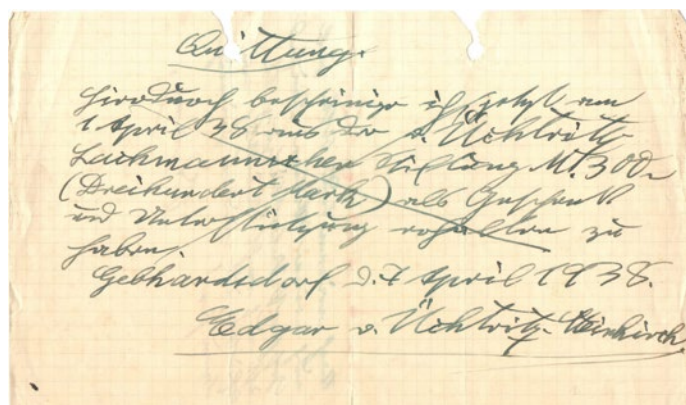 Quittung.
Hierdurch bescheinige ich, jetzt am
1 April 38 aus der v. Üchtritz-
Lachmannschen Stiftung M. 300.-
(Dreihundert Mark) als Geschenk
und Unterstützung erhalten zu
haben.
Gebhardsdorf d. 7 April 1938.
Edgar v. Üchtritz-Steinkirch.